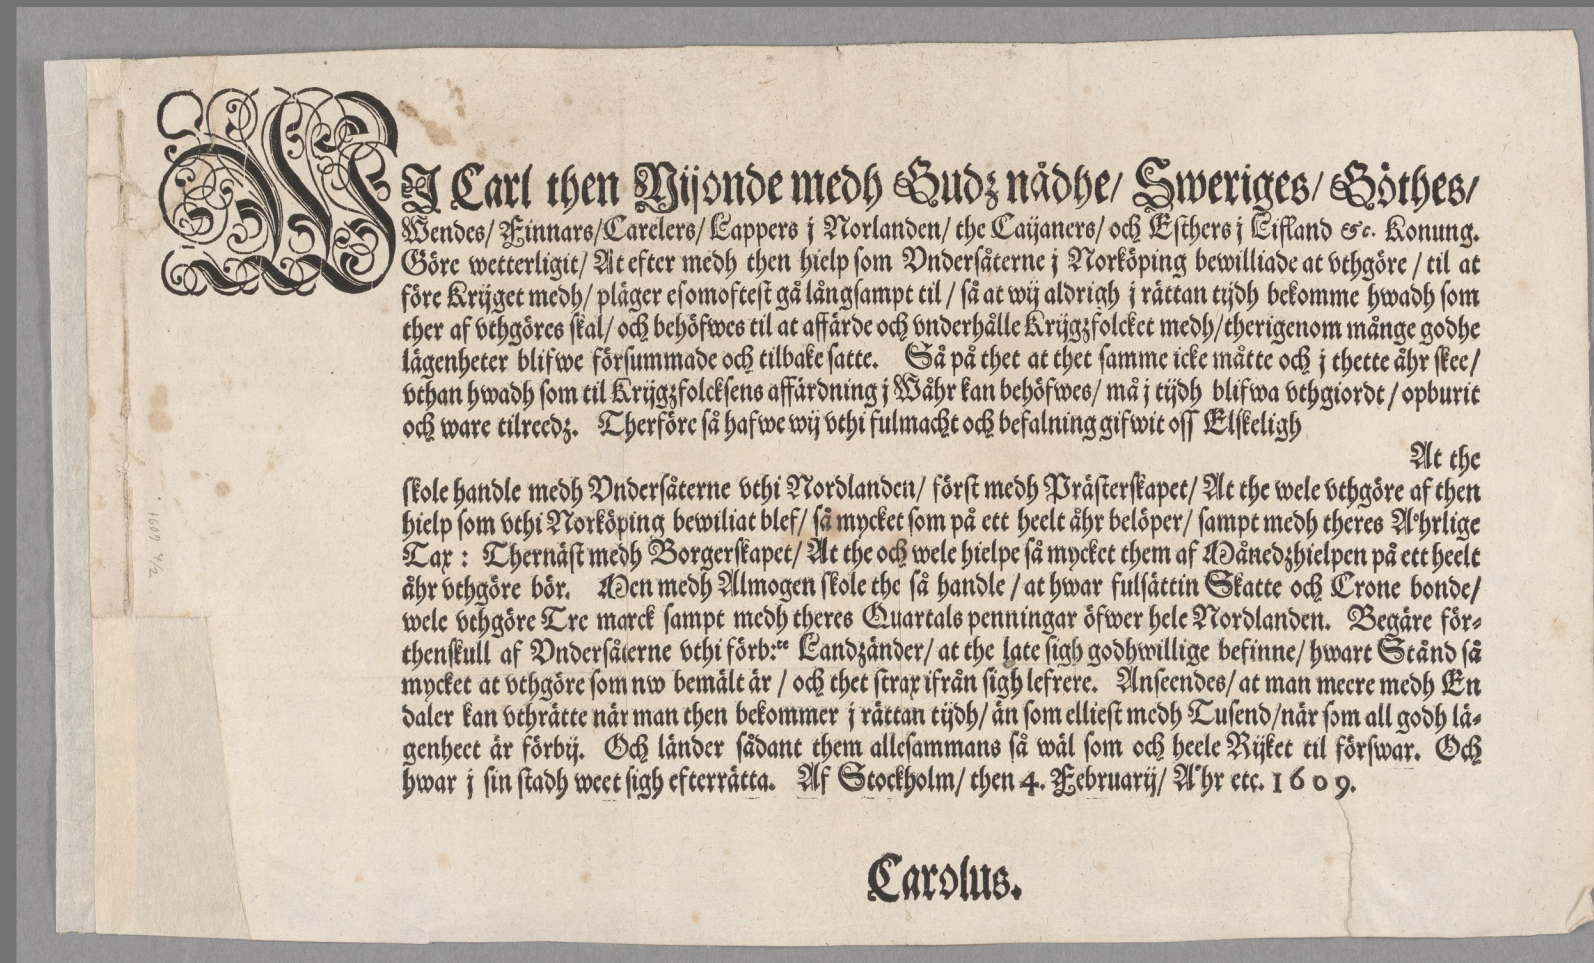 WJ Carl then Nijonde medh Gudz nådhe/ Sweriges/ Göthes/
Wendes/ Finnars/ Carelers/ Lappers j Norlanden/ the Caijaners/ och Esthers j Lifland &c. Konung.
Göre wetterligit/ At efter medh then hielp som Vndersåterne j Norköping bewilliade at vthgöre / til at
före Krijget medh/ pläger esomoftest gå långsampt til / så at wij aldrigh j rättan tijdh bekomme hwadh som
ther af vthgöres skal/ och behöfwes til at affärde och vnderhålle Krijgzfolcket medh/ therigenom månge godhe
lägenheter blifwe försummade och tilbake satte. Så på thet at thet samme icke måtte och j thette åhr skee/
vthan hwadh som til Krijgzfolcksens affärdning j Wåhr kan behöfwes/ må j tijdh blifwa vthgiordt / opburit
och ware tilreedz. Therföre så hafwe wij vthi fulmacht och befalning gifwit oss Elskeligh
At the
skole handle medh Vndersåterne vthi Nordlanden/ först medh Prästerskapet/ At the wele vthgöre af then
hielp som vthi Norköping bewiliat blef/ så mycket som på ett heelt åhr belöper/ sampt medh theres Åhrlige
Tax : Thernäst medh Borgerskapet/ At the och wele hielpe så mycket them af Månedzhielpen på ett heelt
åhr vthgöre bör. Men medh Almogen skole the så handle / at hwar fulsättin Skatte och Crone bonde/
wele vthgöre Tre marck sampt medh theres Quartals penningar öfwer hele Nordlanden. Begäre för-
thenskull af Vndersåterne vthi förb:te Landzänder/ at the late sigh godhwillige befinne/ hwart Stånd så
mycket at vthgöre som nw bemält är / och thet strax ifrån sigh lefrere. Anseendes/ at man meere medh En
daler kan vthrätte när man then bekommer j rättan tijdh/ än som elliest medh Tusend/ när som all godh lä-
genheet är förbij. Och länder sådant them allesammans så wäl som och heele Rijket til förswar. Och
hwar j sin stadh weet sigh efterrätta. Af Stockholm/ then 4. Februarij/ Åhr etc. 1609.
Carolus.
1609 4/2